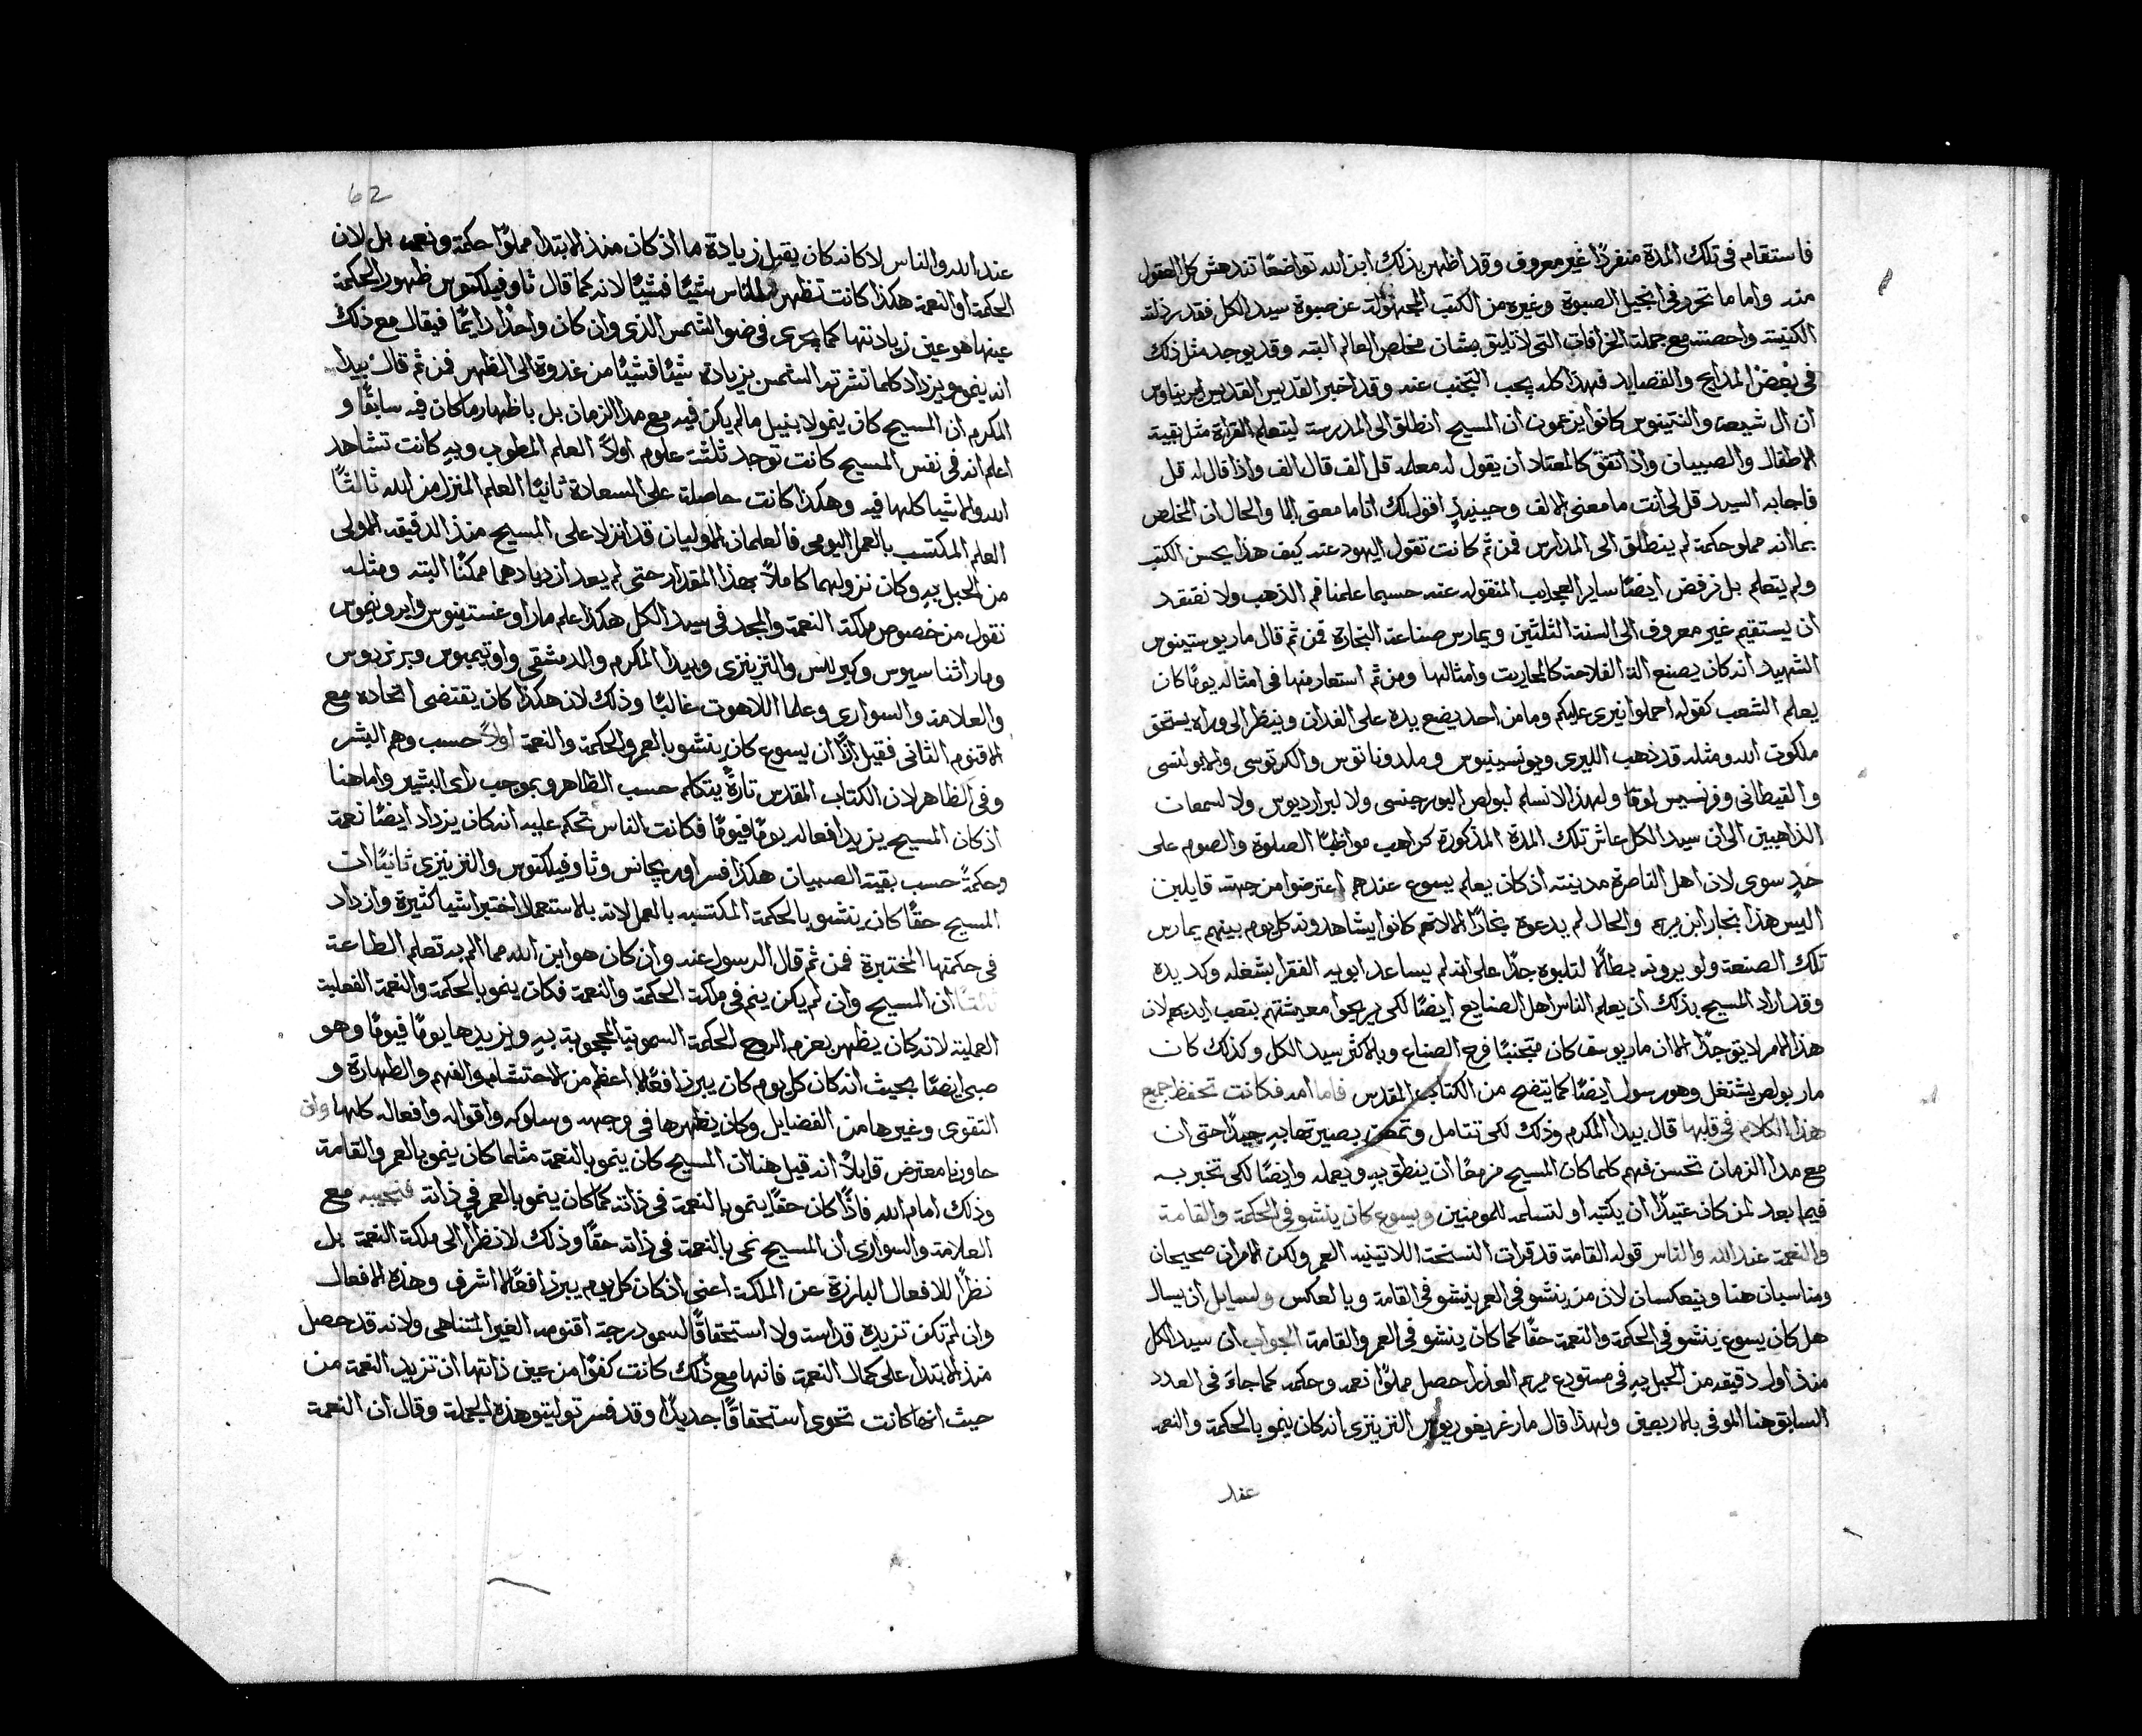 فاستقام في تلك المدة منفردًا غير معروف وقد اظهر بذلك ابن الله تواضعًا تندهش كل العقول
منه واما ما تحرر في انجيل الصبوة وغيره من الكتب المجهولة عن صبوة سيد الكل فقد رذلته
الكنيسة واحصته مع جملة الخرافات التي لا تليق بشان مخلص العالم البته وقد يوجد مثل ذلك
في بعض المدايح والقصايد فهذا كله يجب التجنب عنه وقد اخبر القديس القديس ايريناوس
ان ال شيعة والنتينوس كانوا يزعمون ان المسيح انطلق الى المدرسة ليتعلم القراة مثل بقية
الاطفال والصبيان واذ اتفق كالمعتاد ان يقول له معلمه قل الف قال الف واذ قال له قل
فاجابه السيد قل لي انت ما معنى الالف وحينيذٍ اقول لك انا ما معنى البا والحال ان المخلص
بما انه مملو حكمة لم ينطلق الى المدارس فمن ثم كانت تقول اليهود عنه كيف هذا يحسن الكتب
ولم يتعلم بل نرفض ايضًا ساير العجايب المنقوله عنه حسبما علمنا فم الذهب ولا نعتقد
ان يستقيم غير معروف الى السنة الثلثين ويمارس صناعة النجارة فمن ثم قال مار يوستينوس
الشهيد انه كان يصنع الة الفلاحة كالمحاريت وامثالها ومن ثم استعار منها في امثاله يومًا كان
يعلم الشعب كقوله احملوا نيري عليكم وما من احد يضع يده على الفدان وينظر الى وراه يستحق
ملكوت الله ومثله قد ذهب الليري ويونسينيوس وملدوناتوس والكرتوسي والابولنسي
والقيطاني وفرنسيس لوقا ولهذا لا نسلم لبولص البورجنسي ولا لبراديوس ولا لسمعان
الذاهبين الى ان سيد الكل عاش تلك المدة المذكورة كراهب مواظبًا الصلوة والصوم على
حدٍ سوى لان اهل الناصرة مدينته اذ كان يعلم يسوع عندهم اعترضوا من جهته قايلين
اليس هذا نجار ابن مريم والحال لم يدعوه نجارًا الا لانهم كانوا يشاهدونه كل يوم بينهم يمارس
تلك الصنعة ولو يرونه بطالًا لثلبوه جدًا على انه لم يساعد ابويه الفقرا بشغله وكد يده
وقد اراد المسيح بذلك ان يعلم الناس اهل الصنايع ايضًا لكي يربحوا معيشتهم بتعب ايديهم لان
هذا الامر لايق جدًا الا ان مار يوسف كان متجنبًا فرح الصناع وبالاكثر سيد الكل وكذلك كان
مار بولص يشتغل وهو رسول ايضًا كما يتضح من الكتاب المقدس فاما امه فكانت تحفظ جميع
هذا الكلام في قلبها قال بيدا المكرم وذلك لكي تتامل وتمعن بصيرتها به جيدًا حتى ان
مع مدا الزمان تحسن فهم كلما كان المسيح مزمعًا ان ينطق به ويعمله وايضًا لكي تخبر به
فيما بعد لمن كان عتيدًا ان يكتبه او لتسلمه للمومنين ويسوع كان ينشو في الحكمة والقامة
والنعمة عند الله والناس قوله القامة قد قرات النسخة اللاتينيه العمر ولكن الامران صحيحان
ومناسبان هنا وينعكسان لان من ينشو في العمر ينشو في القامة وبالعكس ولسايل ان يسال
هل كان يسوع ينشو في الحكمة والنعمة حقًا كما كان ينشو في العمر والقامة الجواب ان سيد الكل
منذ اول دقيقه من الحبل به في مستودع مريم العذرا حصل مملوًا نعمه وحكمه كما جاء في العدد
السابق هنا الموفي بالاربعين ولهذا قال مار غريغوريوس النزينزي انه كان ينمو بالحكمة والنعمه
عند
62
عند الله والناس لا كانه كان يقبل زيادة ما اذ كان منذ الابتدا مملوًا حكمة ونعمه بل لان
الحكمة او النعمة هكذا كانت تظهر للناس شيًا فشيًا لانه كما قال ثاوفيلكتوس ظهور الحكمة
عينها هو عين زيادتها كما يجرى في ضو الشمس الذي وان كان واحدًا دايمًا فيقال مع ذلك
انه ينمو ويزداد كلما نشرته الشمس بزيادة شيًا فشيًا من غدوة الى الظهر فمن ثم قال بيدا
المكرم ان المسيح كان ينمو لا بنيل ما لم يكن فيه مع مدا الزمان بل باظهار ما كان فيه سابقًا و
اعلم انه في نفس المسيح كانت توجد ثلثة علوم اولًا العلم المطوب وبه كانت تشاهد
الله والاشيا كلها فيه وهكذا كانت حاصلة على السعادة ثانيًا العلم المنزل من الله ثالثًا
العلم المكتسب بالعمل اليومي فالعلمان الاوليان قد انزلا على المسيح منذ الدقيقه الاولى
من الحبل به وكان نزولهما كاملًا بهذا المقدار حتى لم يعد ازديادهما ممكنًا البته ومثله
نقول من خصوص ملكة النعمة والمجد في سيد الكل هكذا علم مار اوغستينوس وايرونيموس
ومار اثناسيوس وكيرللس والنزينزي وبيدا المكرم والدمشقي واوتيميوس وبرنردوس
والعلامة والسواري وعلما اللاهوت غالبًا وذلك لانه هكذا كان يقتضى اتحاده مع
الاقنوم الثاني فقيل اذًا ان يسوع كان ينشو بالعمر والحكمة والنعمة اولًا حسب وهم البشر
وفي الظاهر لان الكتاب المقدس تارةً يتكلم حسب الظاهر وبموجب راى البشر واما هنا
اذ كان المسيح يزيد افعاله يومًا فيومًا فكانت الناس تحكم عليه انه كان يزداد ايضًا نعمة
وحكمةً حسب بقية الصبيان هكذا فسر اوريجانس وثاوفيلكتوس والنزينزي ثانيًا ان
المسيح حقًا كان ينشو بالحكمة المكتسبه بالعمل لانه بالاستعمال اختبر اشيا كثيرة وازداد
في حكمتها المختبرة فمن ثم قال الرسول عنه وان كان هو ابن الله مما الم به تعلم الطاعة
ثالثًا ان المسيح وان لم يكن ينم في ملكة الحكمة والنعمة فكان ينمو بالحكمة والنعمة الفعلية
العملية لانه كان يظهر بعزم الروح الحكمة السموية المحجوبة به ويزيدها يومًا فيومًا وهو
صبي ايضًا بحيث انه كان كل يوم كان يبرز افعالًا اعظم من الاحتشام والفهم والطهارة و
التقوى وغيرها من الفضايل وكان يظهرها في وجهه وسلوكه واقواله وافعاله كلها وان
حاورنا معترض قايلًا انه قيل هنا ان المسيح كان ينمو بالنعمة مثلما كان ينمو بالعمر والقامة
وذلك امام الله فاذًا كان حقًا ينمو بالنعمة في ذاته كما كان ينمو بالعمر في ذاته فنجيبه مع
العلامة والسواري ان المسيح نمى بالنعمة في ذاته حقًا وذلك لا نظرًا الى ملكة النعمة بل
نظرًا للافعال البارزة عن الملكة اعني اذ كان كل يوم يبرز افعالًا اشرف وهذه الافعال
وان لم تكن تزيده قداسة ولا استحقاقًا لسمو درجة اقنومه الغير المتناهي ولانه قد حصل
منذ الابتدا على كمال النعمة فانها مع ذلك كانت كفوًا من عين ذاتها ان تزيد النعمة من
حيث انها كانت تحوى استحقاقًا جديدًا وقد فسر توليتو هذه الجملة وقال ان النعمة